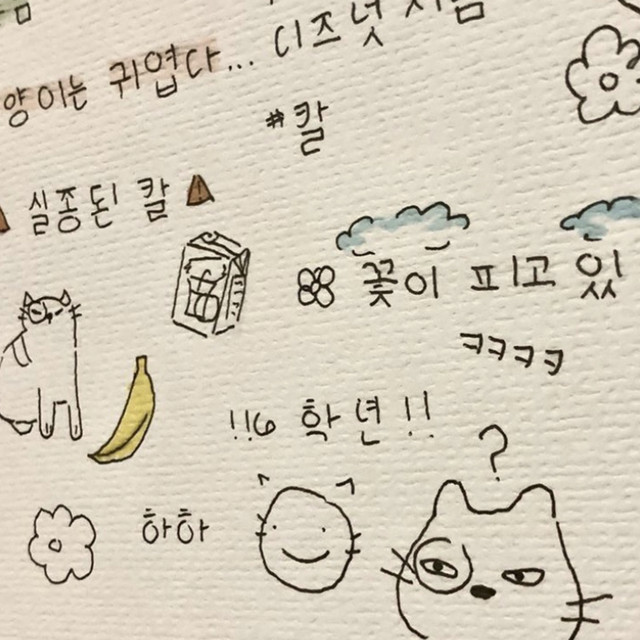 디즈넛
양이는 귀엽다...
#칼
실종된 칼
꽃이 피고 있
ㅋㅋㅋㅋ
!!6 학년!!
?
하하